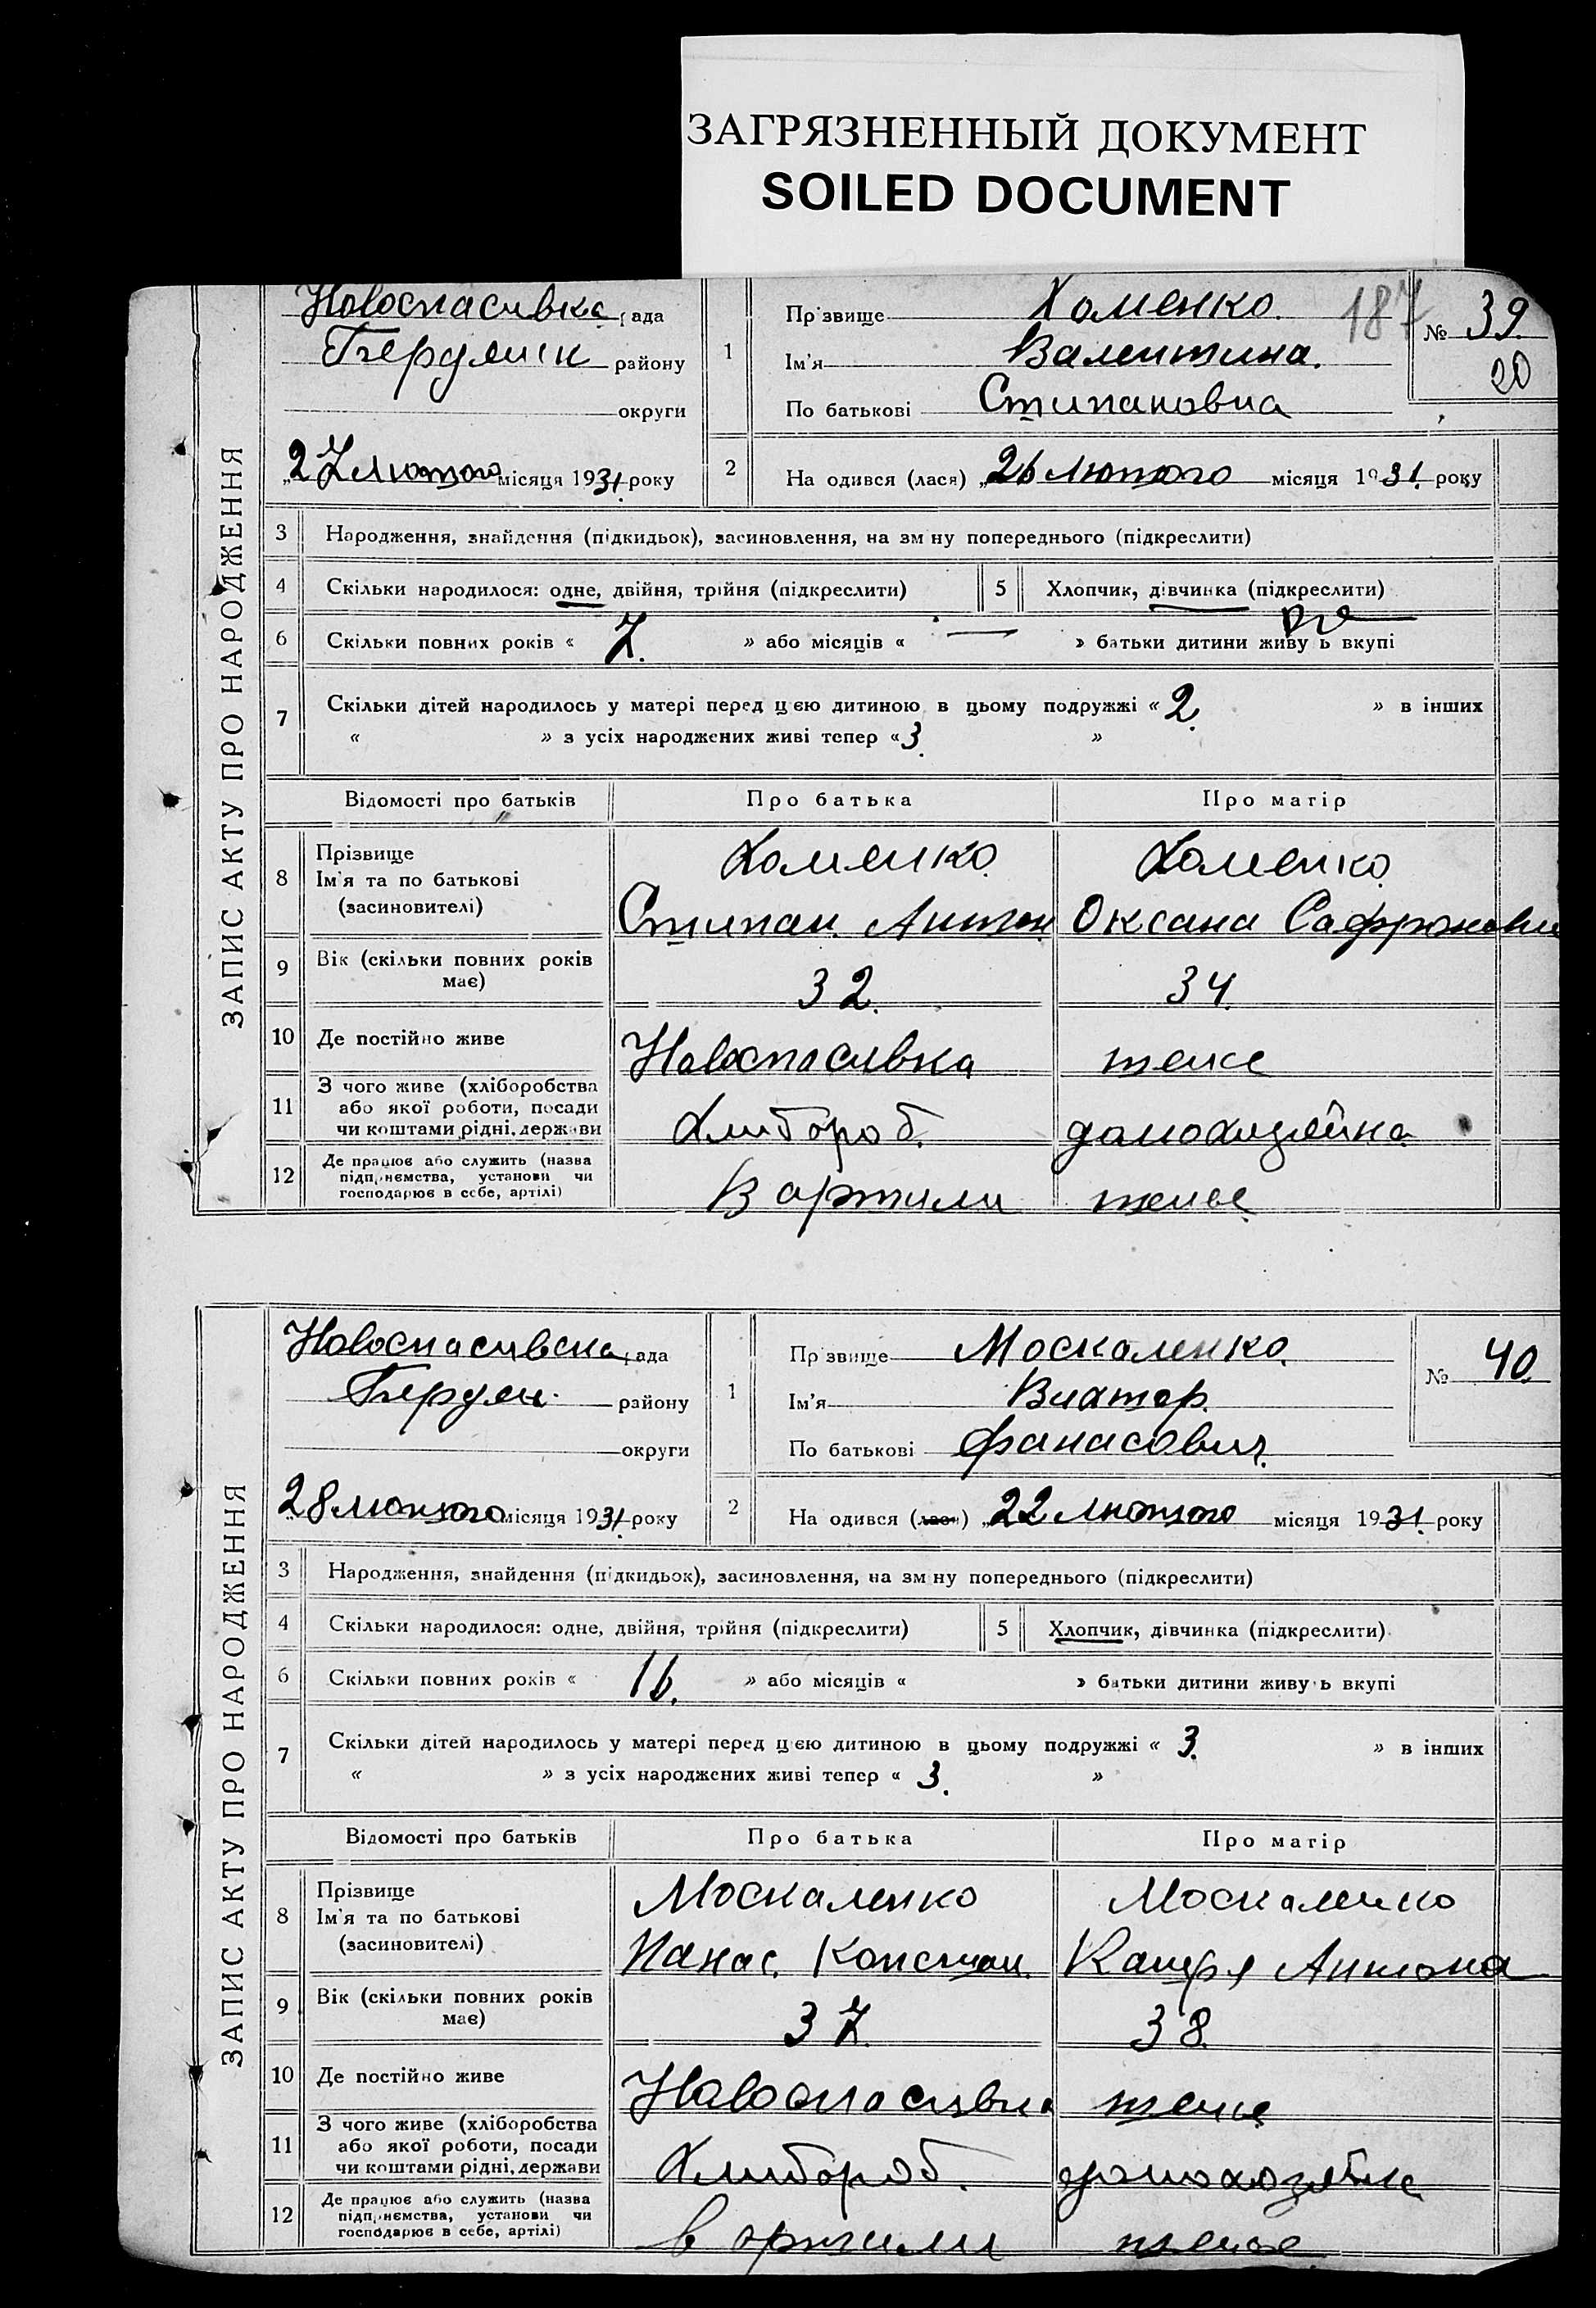 ЗАГРЯЗНЕННЫЙ ДОКУМЕНТ
SOILED DOCUMENT
ЗАПИС АКТУ ПРО НАРОДЖЕННЯ
Новоспасивка рада
Бердянськ району
округи
„27 лютого місяця 1931. року
1
Прізвище Хоменко.
Ім'я Валентина.
По батькові Стипановна
187
№ 39.
20
2
Народився (лася) „26 лютого місяця 1931. року
3 Народження, знайдення (підкидьок), засиновлення, на зміну попереднього (підкреслити)
4 Скільки народилося: одне, двійня, трійня (підкреслити)
5 Хлопчик, дівчинка (підкреслити)
6 Скільки повних років « 7. » або місяців « — » батьки дитини живуть вкупі
7 Скільки дітей народилось у матері перед цією дитиною в цьому подружжі « 2. » в інших
« » з усіх народжених живі тепер «3. »
Відомості про батьків Про батька Про матір
8 Прізвище
Ім'я та по батькові
(засиновителі)
Хоменко
Стипан. Антон
Хоменко
Оксана Сафроновна
9 Вік (скільки повних років
має)
32. 34.
10 Де постійно живе Новоспасивка теже
11 З чого живе (хліборобства
або якої роботи, посади
чи коштами рідні, держави
Хлибороб. домохозяйка
12 Де працює або служить (назва
підприємства, установи чи
господарює в себе, артілі)
В артили теже
ЗАПИС АКТУ ПРО НАРОДЖЕННЯ
Новоспасивска рада
Бердян. району
округи
„28 лютого місяця 1931. року
1
Прізвище Москаленко.
Ім'я Виктор.
По батькові Фанасович.
№ 40.
2
Народився (лася) „22 лютого місяця 1931. року
3 Народження, знайдення (підкидьок), засиновлення, на зміну попереднього (підкреслити)
4 Скільки народилося: одне, двійня, трійня (підкреслити)
5 Хлопчик, дівчинка (підкреслити)
6 Скільки повних років « 16. » або місяців « » батьки дитини живуть вкупі
7 Скільки дітей народилось у матері перед цією дитиною в цьому подружжі « 3. » в інших
« » з усіх народжених живі тепер « 3. »
Відомості про батьків Про батька Про матір
8 Прізвище
Ім'я та по батькові
(засиновителі)
Москаленко
Панас. Констан.
Москаленко
Антона
9 Вік (скільки повних років
має)
37. 38.
10 Де постійно живе Новоспасивка теже
11 З чого живе (хліборобства
або якої роботи, посади
чи коштами рідні, держави
Хлибороб. домохозяйка
12 Де працює або служить (назва
підприємства, установи чи
господарює в себе, артілі)
в артили теже